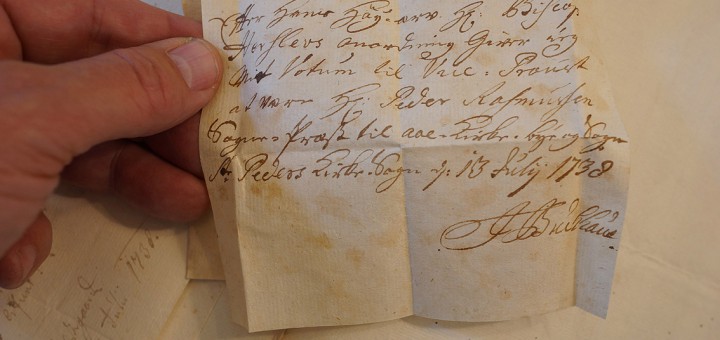 Efter Hans Høy-ærv. Hr: Biscop
Herslevs anordning Giver ieg
Mit Votum til Vice-Provst
at være Hr: Peder Rasmussen
Sogne-Præst til Aae-Kirke-bye og Sogn
St. Peders Kirke-Sogn d: 13 Julij 1738
1738.